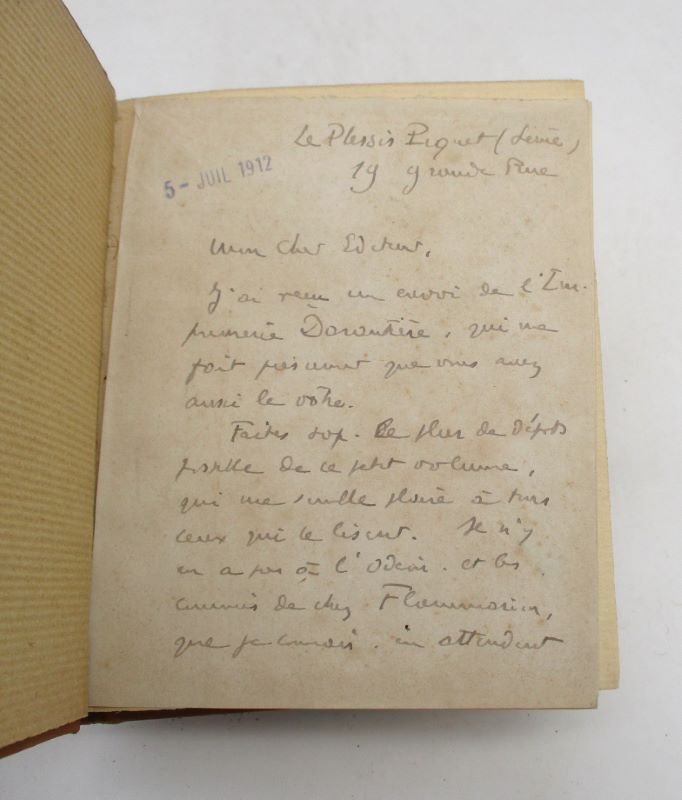 Le Plessis Piquet (Seine)
5 - JUIL 1912
19 grande Rue
Mon cher Editeur,
J'ai reçu un envoi de l'Im-
primerie Darantière, qui me
fait présumer que vous avez
aussi le vôtre.
Faites donc le plus de dépôts
possible de ce petit volume,
qui me semble plaire à tous
ceux qui le lisent. Il n'y
en a pas à l'Odéon. et les
commis de chez Flammarion,
que je connais. en attendent